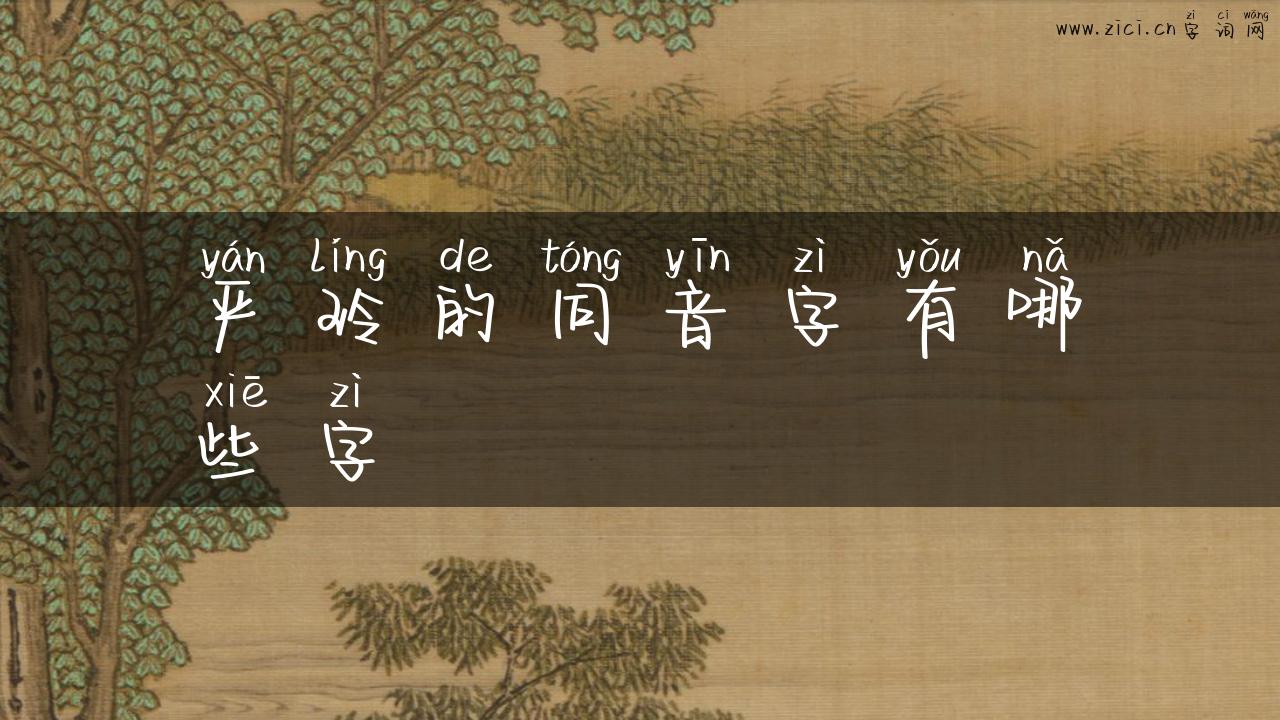 zì cí wǎng
www.zici.cn 字词网
yán líng de tóng yīn zì yǒu nǎ
严玲的同音字有哪
xiē zì
些字